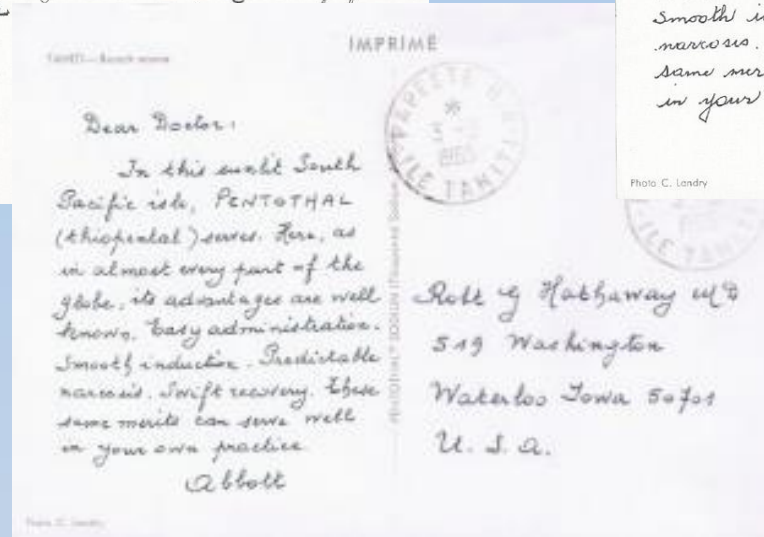 Smooth
narcosis.
same
in your
Photo C. Landry
IMPRIMÉ
Dear Doctor:
In this sunlit South
Pacific isle, PENTOTHAL
(thiopental) serves. Here, as
in almost every part of the
globe, its advantages are well
known. Easy administration.
Smooth induction. Predictable
narcosis. Swift recovery. These
same merits can serve well
in your own practice
Abbott
PAPEETE
ILE TAHITI
Robt G Hathaway MD
519 Washington
Waterloo Iowa 50701
U. S. A.
ILE TAHITI
Photo C. Landry